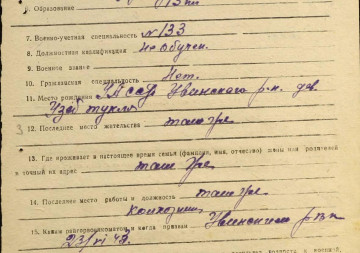 6. Образование
7. Военно-учетная специальность №133
8. Должностная квалификация не обучен.
9. Военное звание
10. Гражданская специальность Нет.
11. Место рождения ТАССР, р-н. дер.
12. Последнее место жительства там же
13. Где проживает в настоящее время семья (фамилия, имя, отчество) жены или родителей
и точный их адрес там же,
14. Последнее место работы и должность там же
колхозник,
15. Каким райгорвоенкоматом и когда призван
23/VI 42.